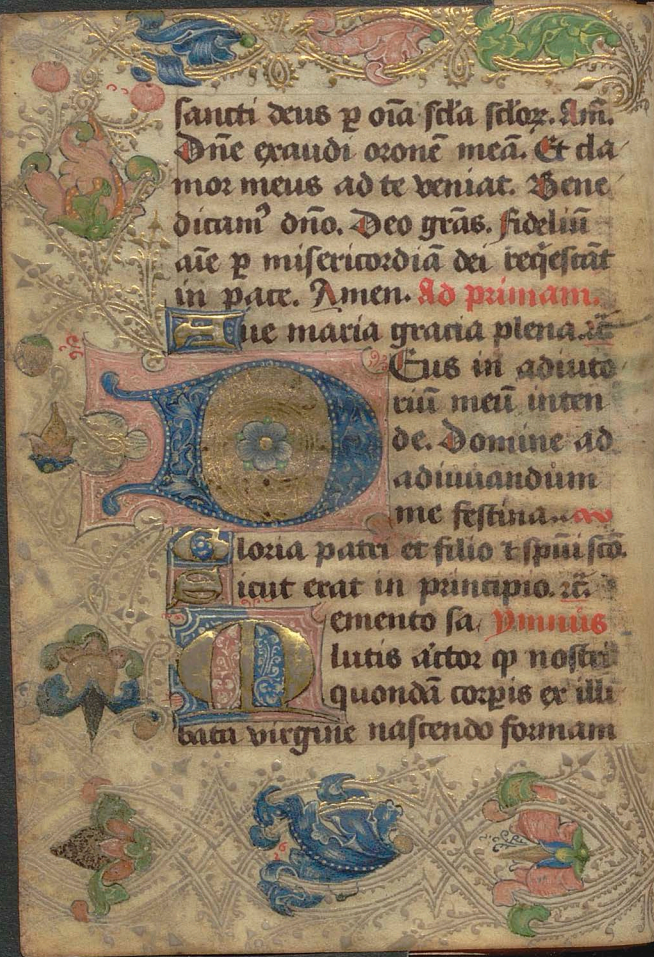 sancti deus ꝑ oīa scła scłoꝝ. Am̄.
Dn̄e exaudi oronē meā. Et cla
mor meus ad te veniat. Bene
dicamꝰ dn̄o. Deo grās. fideliū
aīe ꝑ misericordiā dei reqͥescāt
in pace. Amen. Ad primam.
Aue maria gracia plena. ꝛc̄
Deus in adiuto
riū meū inten
de. Domine ad
adiuuandum
me festina.
Gloria patri et filio ⁊ spūi scō.
Sicut erat in principio. ꝛc̄
Memento sa ymnus
lutis auctor ꝙ nostri
quondā corꝑis ex illi
bata virgine nascendo formam